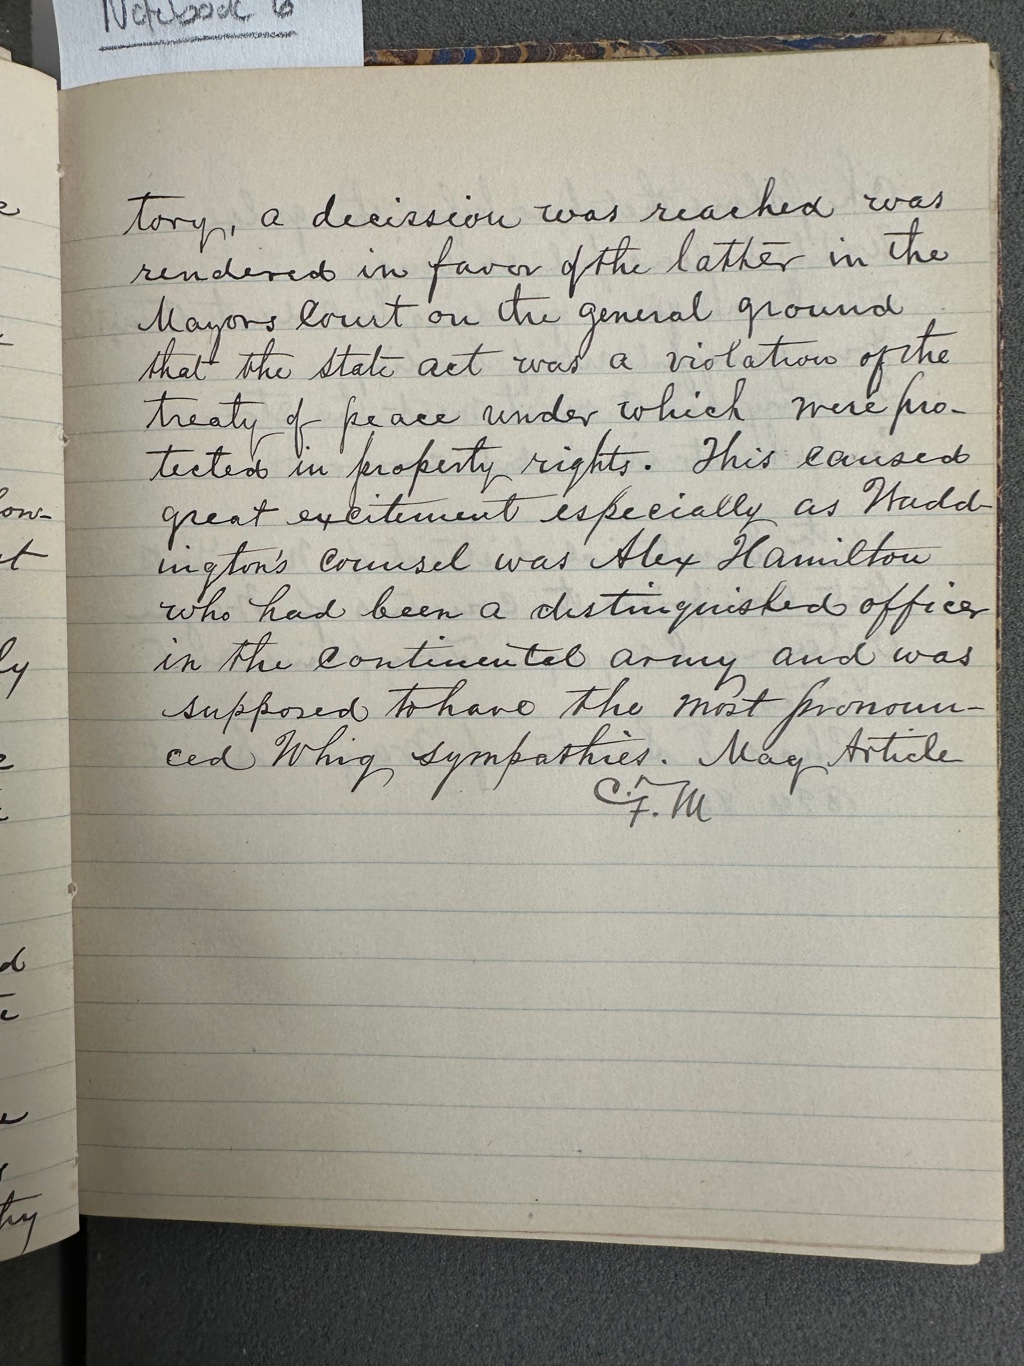 Notebook 6
tory, a decission was reached was
rendered in favor of the latter in the
Mayors Court on the general ground
that the state act was a violation of the
treaty of peace under which were pro-
tected in property rights. This caused
great excitement especially as Wadd-
ington's counsel was Alex Hamilton
who had been a distinguished officer
in the continental army and was
supposed to have the most pronoun-
ced Whig sympathies. Mag Article
C.F.M